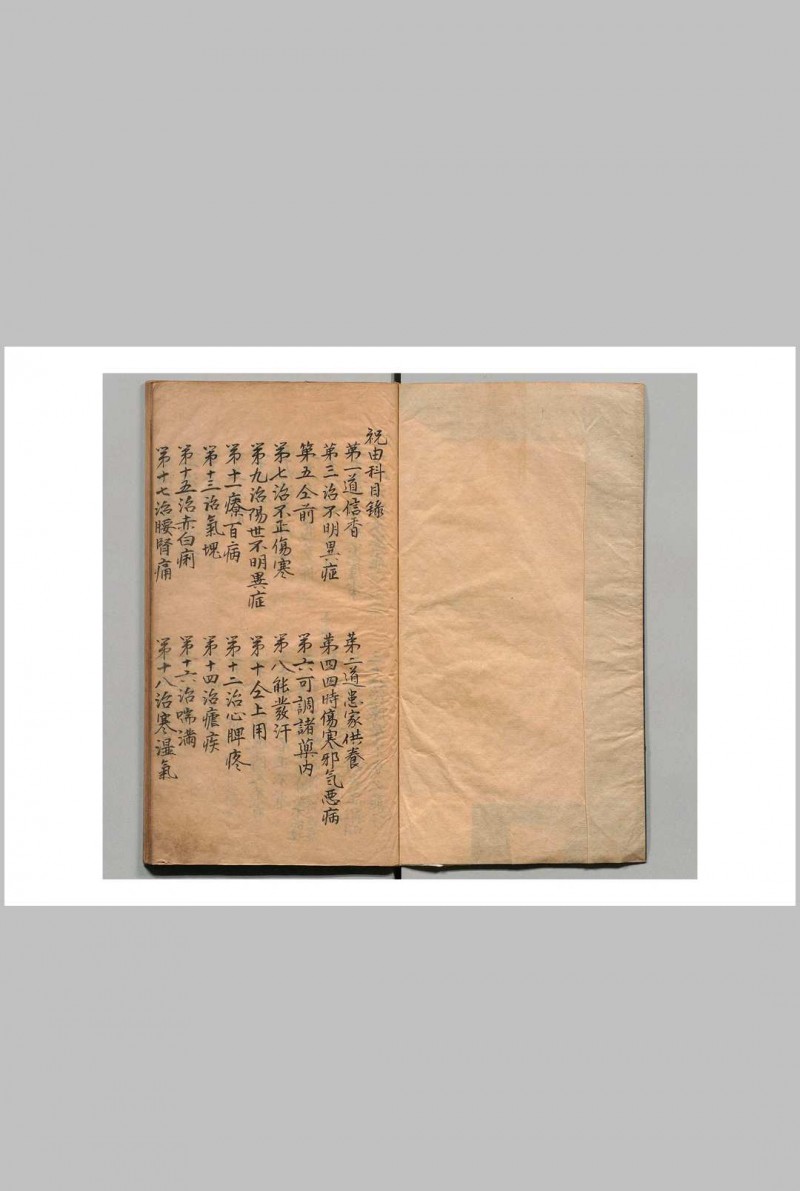 祝由科目錄
第一道信香
第二道患家供養
第三治不明異症
第四四時傷寒邪氣惡病
第五仝前
第六可調諸藥內
第七治不正傷寒
第八能發汗
第九治陽世不明異症
第十仝上用
第十一療百病
第十二治心脾疼
第十三治氣塊
第十四治瘧疾
第十五治赤白痢
第十六治喘滿
第十七治腰腎痛
第十八治寒湿氣